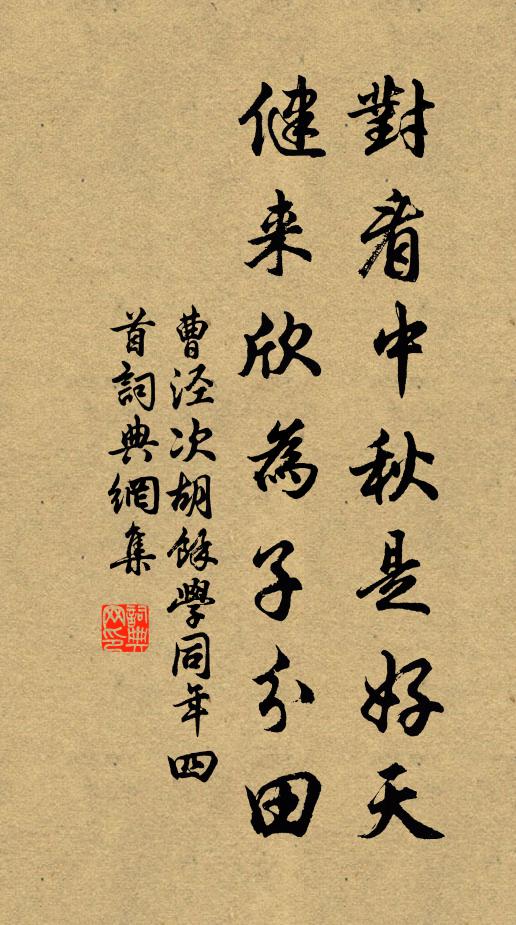 對看中秋是好天
健来欣為子分田
曹泾次胡餘學同年四
首詞典網集
詞典
网印